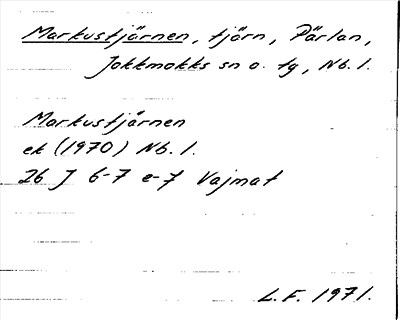 Markustjärnen, tjärn, Pärlan,
Jokkmokks sn o. tg, Nb. l.
Markustjärnen
ek (1970) Nb. l.
26 J 6-7 e-f Vajmat
L.F. 1971.